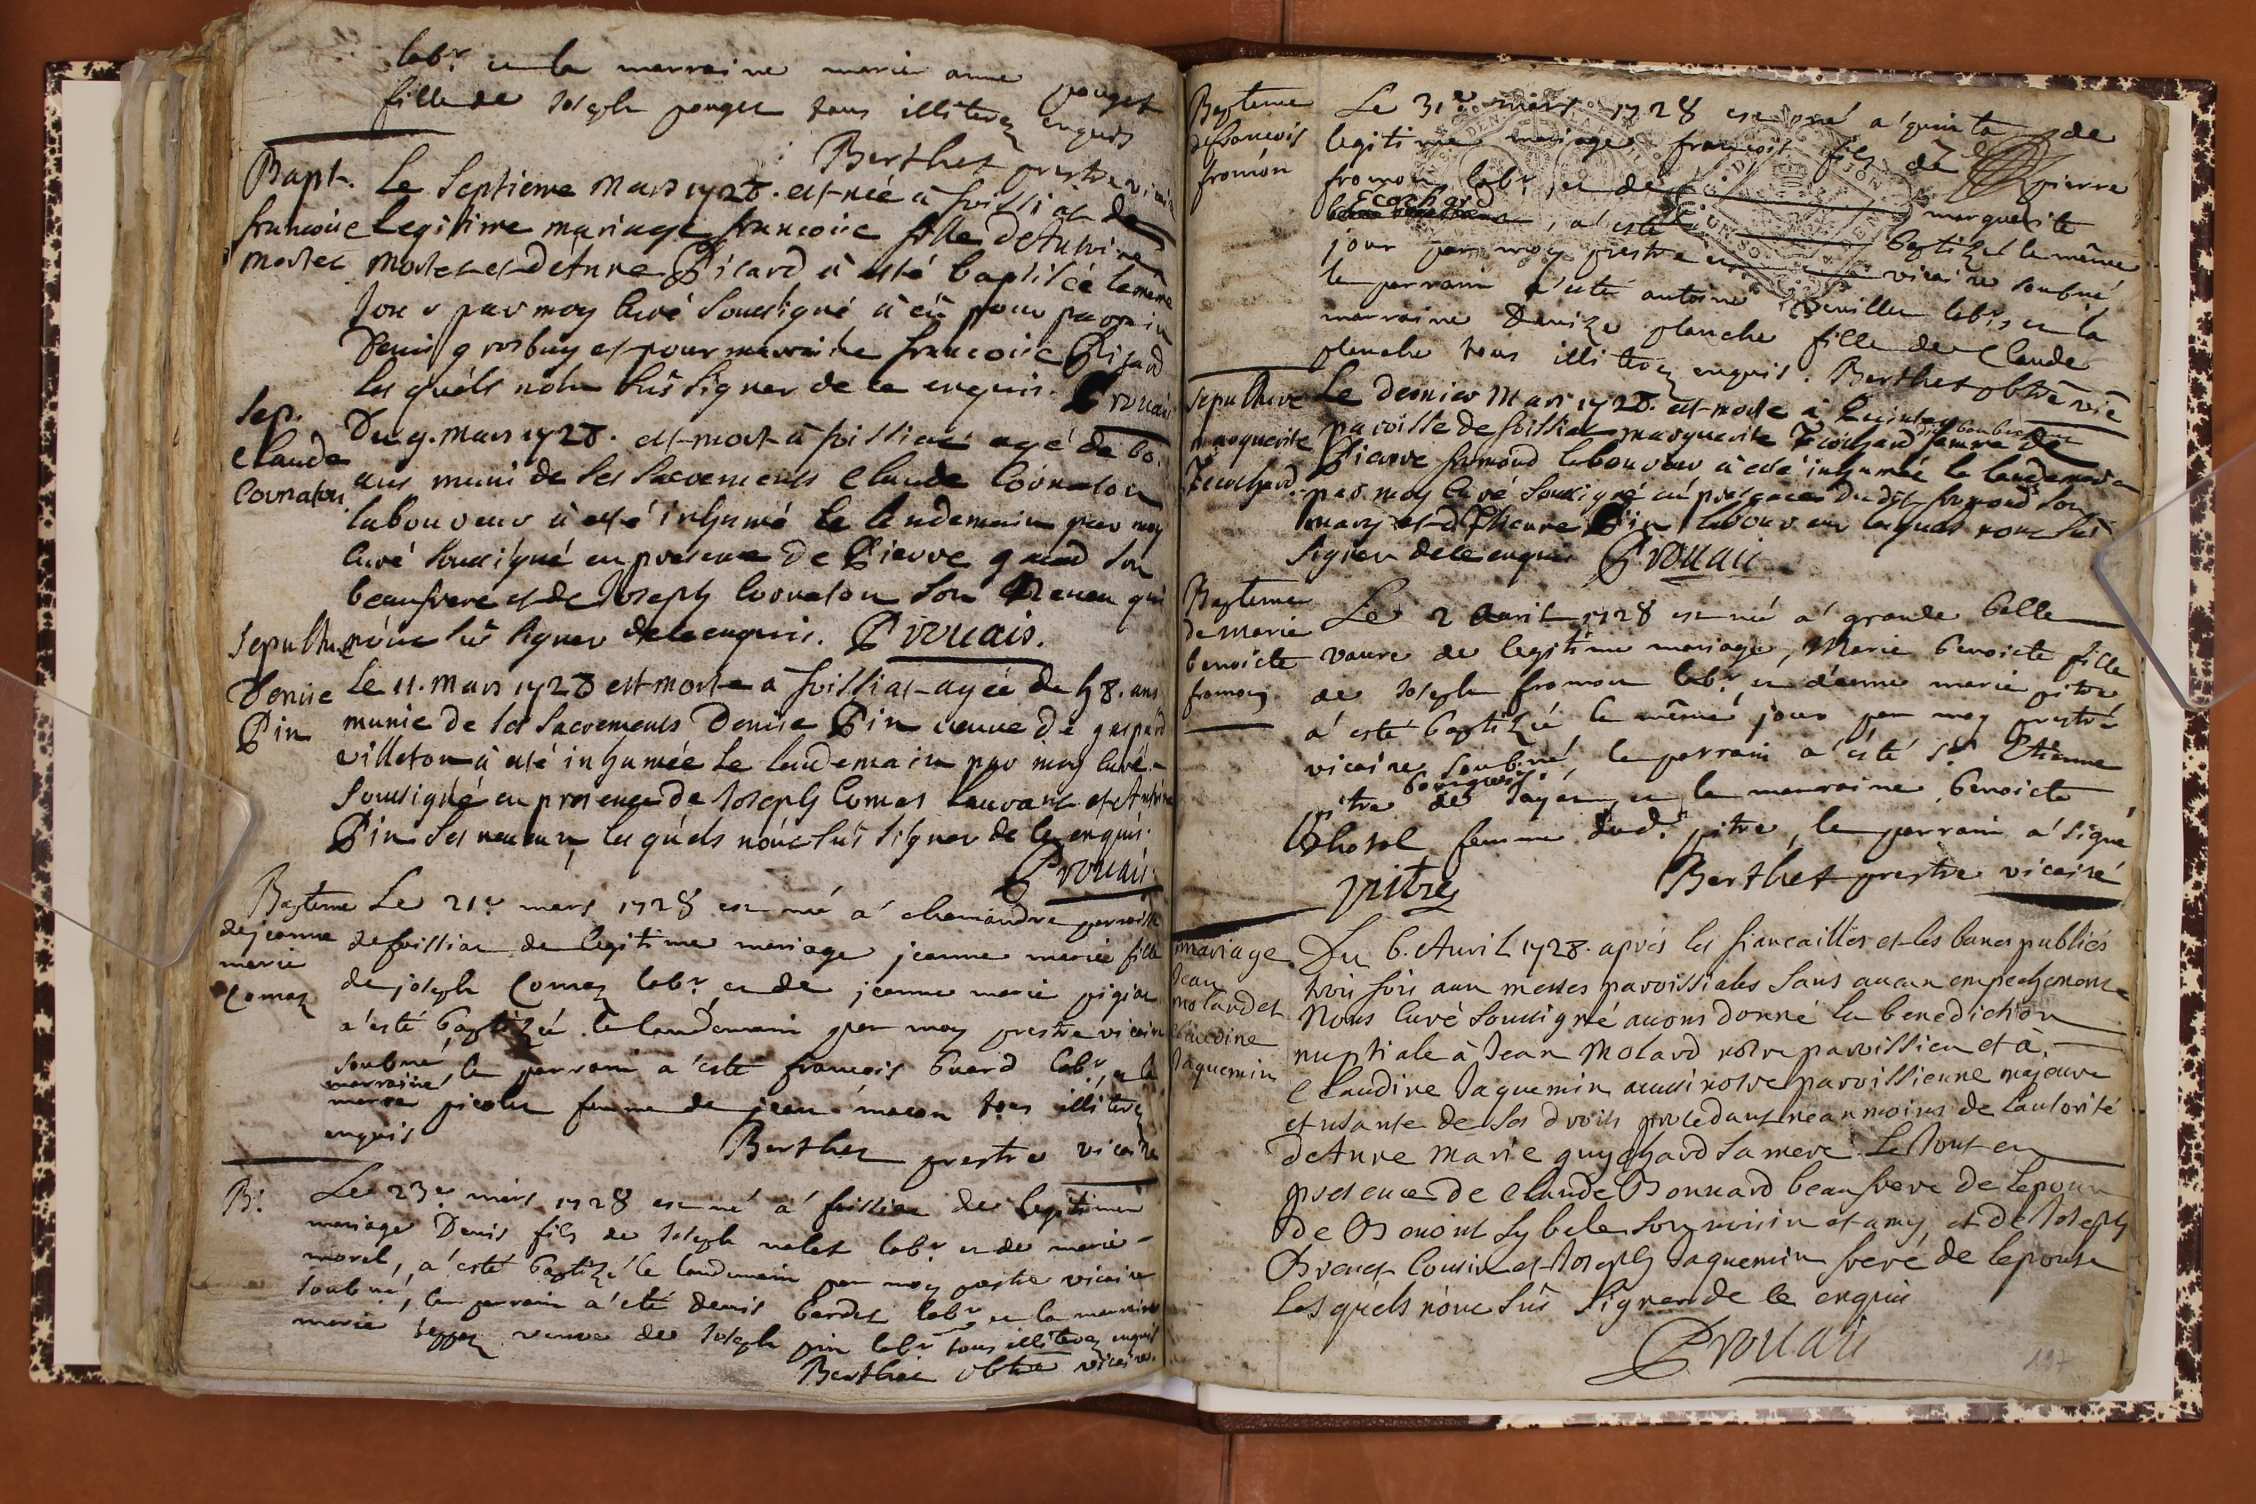 labr et la marraine marie anne pouget
fille de Joseph pouget tous illiterez enquis
Berthet prestre vicaire
Bapt. francoise mortet
Le Septieme Mars 1728. est née à foissiat de
legitime mariage francoise fille d'Antoine
mortet et d'Anne Picard à esté baptisée le meme
Jour par moy Curé Soussigné à eü pour parrin
Denis grosbuy et pour marraine francoise Picard
les quéls nont sus signer de ce enquis. Provais
Sep. Claude Cornaton
Du 9. mars 1728. est mort à foissiat agé de 60.
ans muni de ses Sacrements Claude Cornaton
laboureur à esté inhumé le lendemain par moy
Curé soussigné en presence de Pierre grand son
beaufrere et de Joseph Cornaton son neveu qui
nónt sü signer de ce enquis. Provais.
Sepulture Denise Pin
Le 11. Mars 1728 est morte à foissiat agée de 48. ans
munie de ses Sacrements Denise Pin veuve de gaspard
villeton à esté inhumée le lendemain par moy Curé
Soussigné en presence de Joseph Comas Lauvant et Antoine
Pin ses neveux les quéls nónt süs signer de ce enquis.
Provais
Bapteme de jeanne marie Comaz
Le 21e mars 1728 est né a chemandre parroisse
de foissiat de legitime mariage jeanne marie fille
de joseph Comaz labr et de jeanne marie pigiat
a esté baptizée le landemain par moy prestre vicaire
soubné, le parrain a esté francois Guard labr, et la
marraine
marie picolet femme de jean macon tous illiterez
enquis
Berthet prestre vicaire
B:
Le 23e mars 1728 est né a foissiat de legitime
mariage Denis fils de Joseph nalet labr et de marie
morel, a esté baptizé le landemain par moy prestre vicaire
soubné, le parrain a eté denis bardet labr et la marraine
marie veuve de Joseph pin labr tous illiterez enquis
Berthet vicaire.
Bapteme de francois fromon
Le 31e mars 1728 est né a quinta de
legitime mariage francois fils de pierre
fromon labr, et de marguerite
Ecochard, a esté baptizé le même
jour par moy prestre et vicaire soubné
le parrain a esté antoine Deviller labr, et la
marraine Denize planche fille de Claude
planche tous illiterez enquis. Berthet vic
Sepulture marguerite Fecochard
Le dernier Mars 1728. est morte à Quinta
paroisse de foissiat marguerite Fecochard femme de
Pierre fromond laboureur à esté inhumée le lendemain
par moy Curé Soussigné en presence dudit fromond son
mary et d'Etienne Pin laboureur lequels nont sus
signer de ce enquis Provais
Bapteme de marie benoicte fromon
Le 2 Avril 1728 est né a grande Celle
vaure de legitime mariage, Marie benoicte fille
de Joseph fromon labr, et d'anne marie pitre
a esté baptizée le même jour par moy prestre
vicaire soubné, le parrain a été Sr Etienne
bourgeois
pitre de Jayat, et la marraine benoicte
Chosal femme dud. pitre, le parrain a signé
pitre Berthet prestre vicaire
mariage Jean molard et Claudine Jaquemin
Du 6. Avril 1728. aprés les fiancailles et les bancs publiés
trois fois aux messes paroissiales sans aucun empechement
Nous Curé Soussigné avons donné la benediction
nuptiale à Jean Molard notre paroissien et à
Claudine Jaquemin aussi notre paroissienne majeure
et usante de ses droits procedant neanmoins de lautorité
d'Anne Marie guychard sa mere. Le tout en
presence de Claude Bonnard beaufrere de lepoux
de Benoit Sybele son voisin et amy et de Joseph
Brevet Cousin et Joseph Jaquemin frere de lepouse
Les quéls nónt süs signer de ce enquis
Provais
197